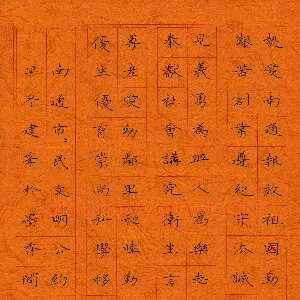 熱愛南通報效祖國勤
艱苦創業遵紀守法誠
見義勇為助人為樂忠
奉獻社會講究衛生言
尊老愛幼鄰里和睦勤
優生優育崇尚科學移
南通市民文明公約
甲午建於墨香閣